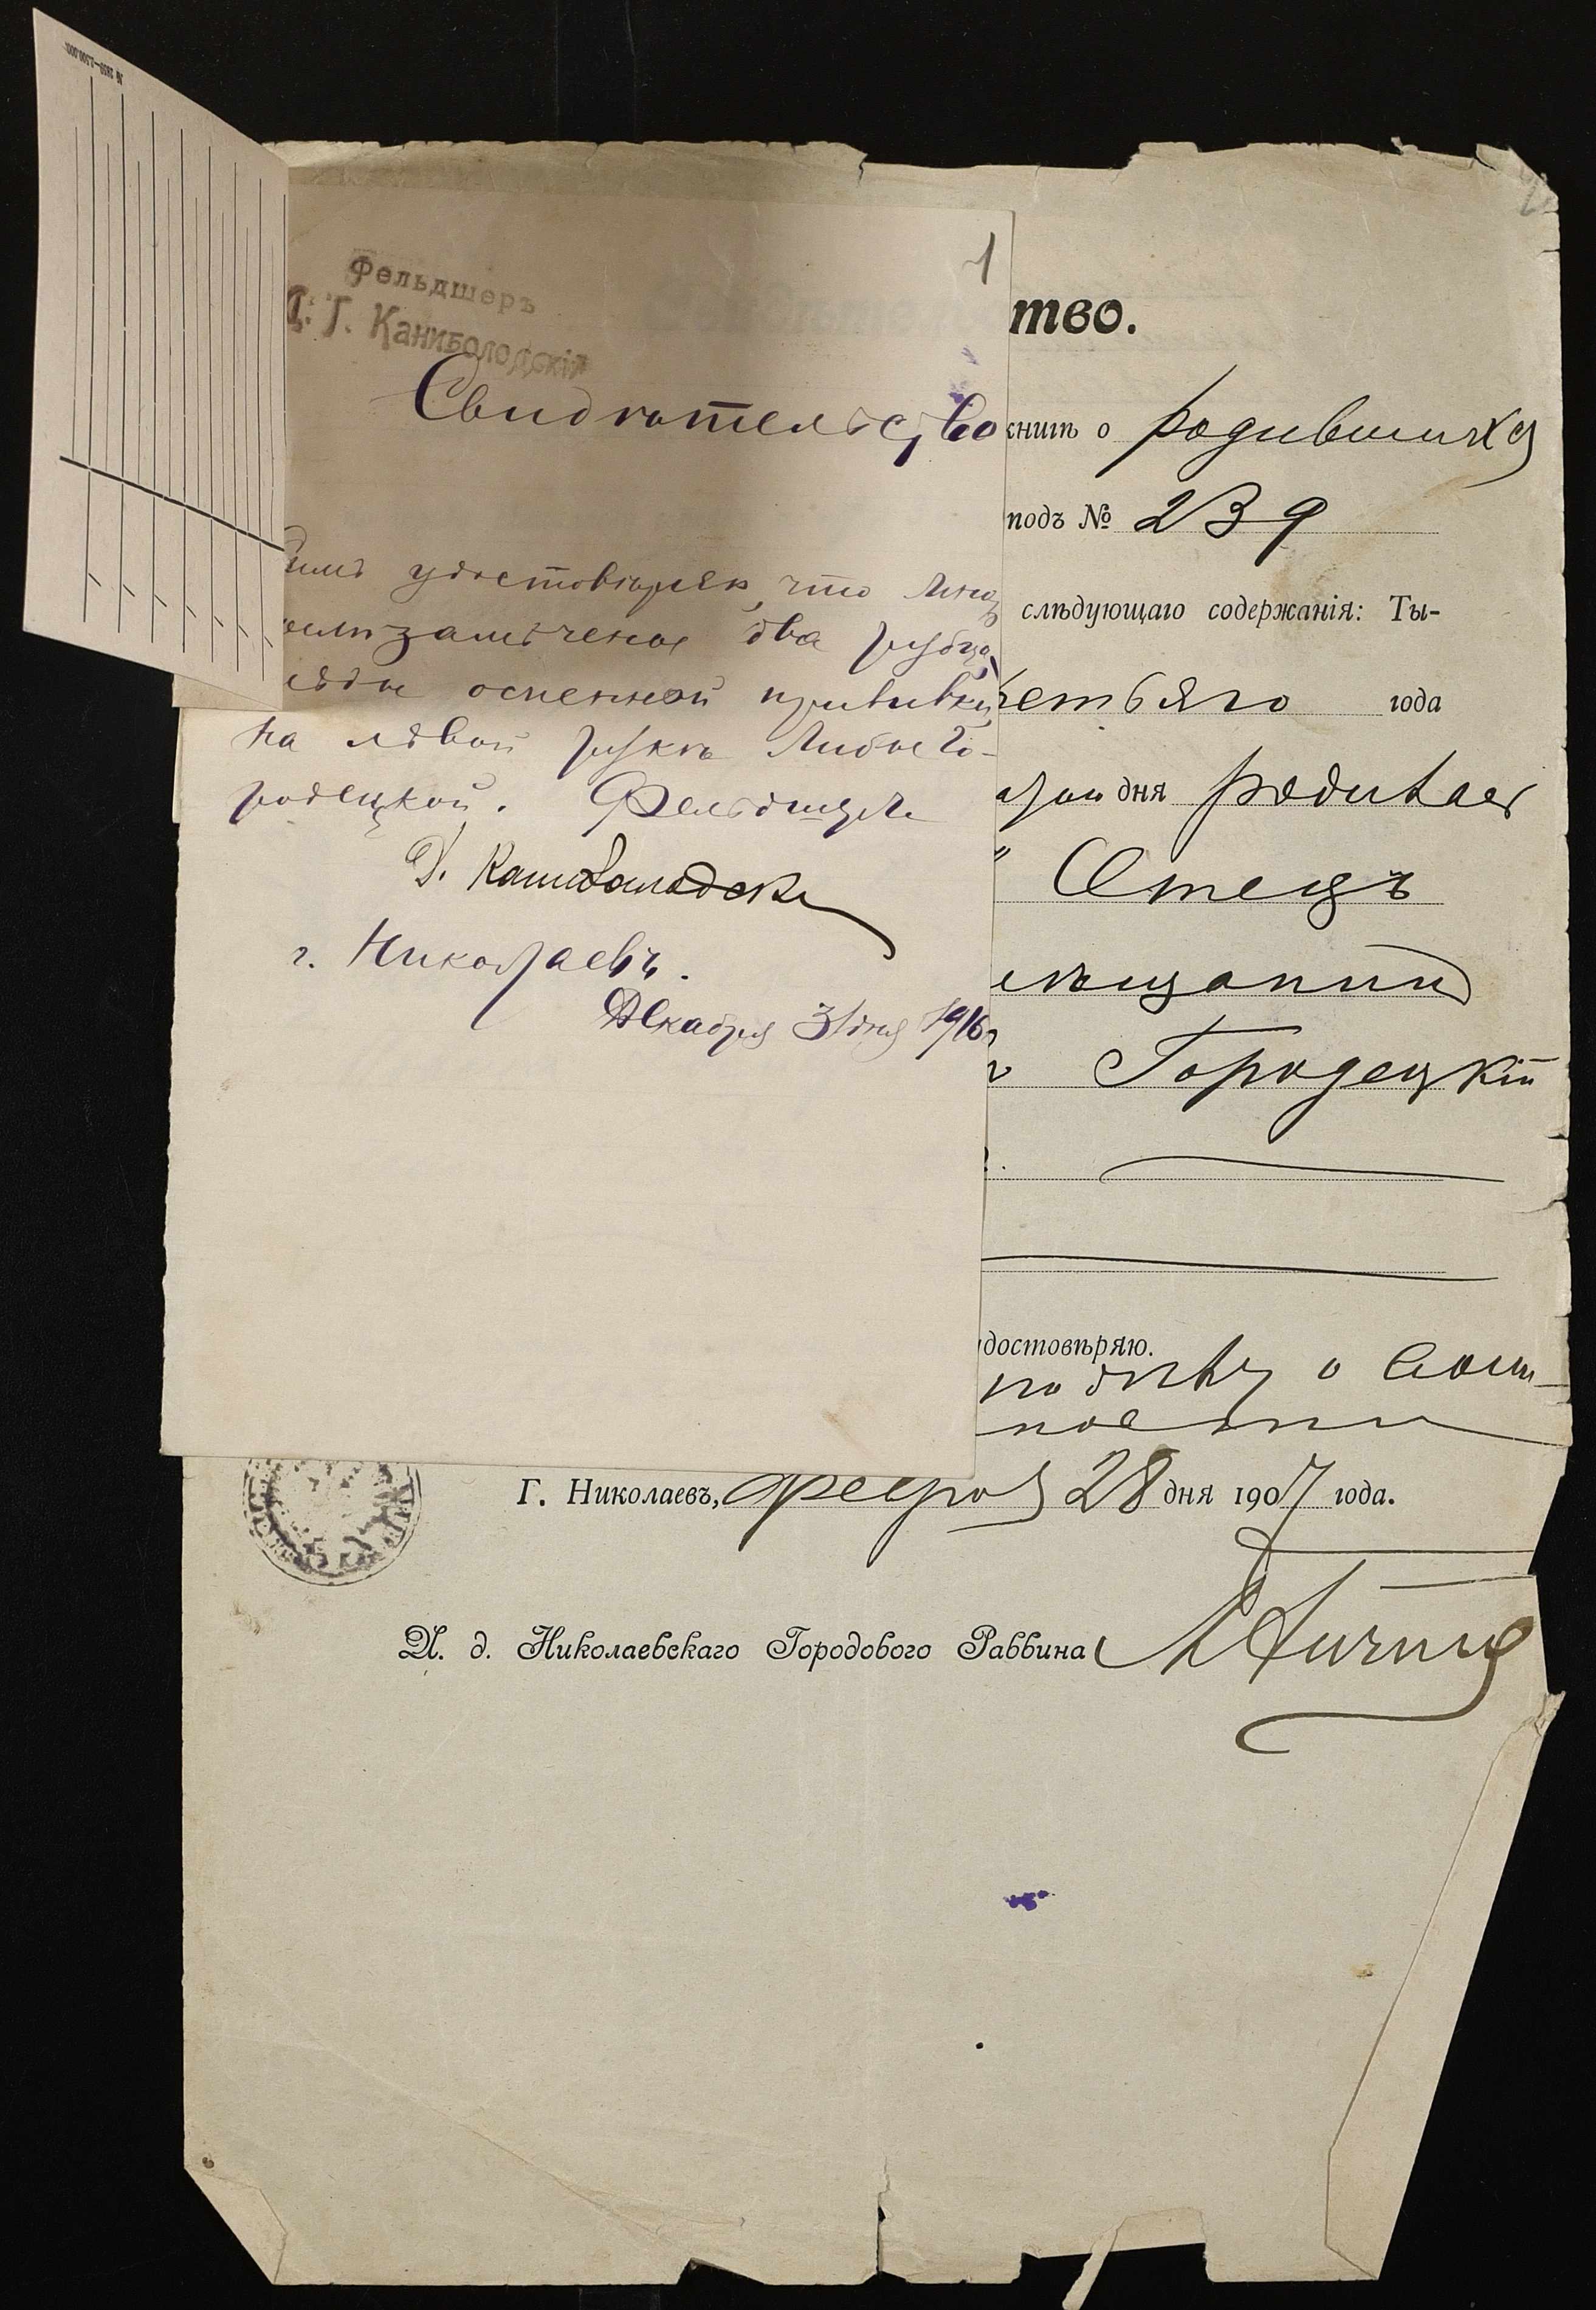 № 2859—1.500.000.
1
Фельдшеръ
Д. Г. Каниболодскій
Свидѣтельство
симъ удостовѣряю, что мною
замѣчены два рубца
оспенной прививки
на лѣвой рукѣ Либы Го-
родецкой. Фельдшеръ
Д. Каниболодскі
г. Николаевъ.
Декабря 31 дня 1916
тво.
книгѣ о родившихся
подъ № 239
слѣдующаго содержанія: Ты-
третьяго года
дня родилась
" Отецъ
мѣщанинъ
Городецкій
достовѣряю.
Г. Николаевъ, Февраля 28 дня 1907 года.
И. д. Николаевскаго Городового Раввина